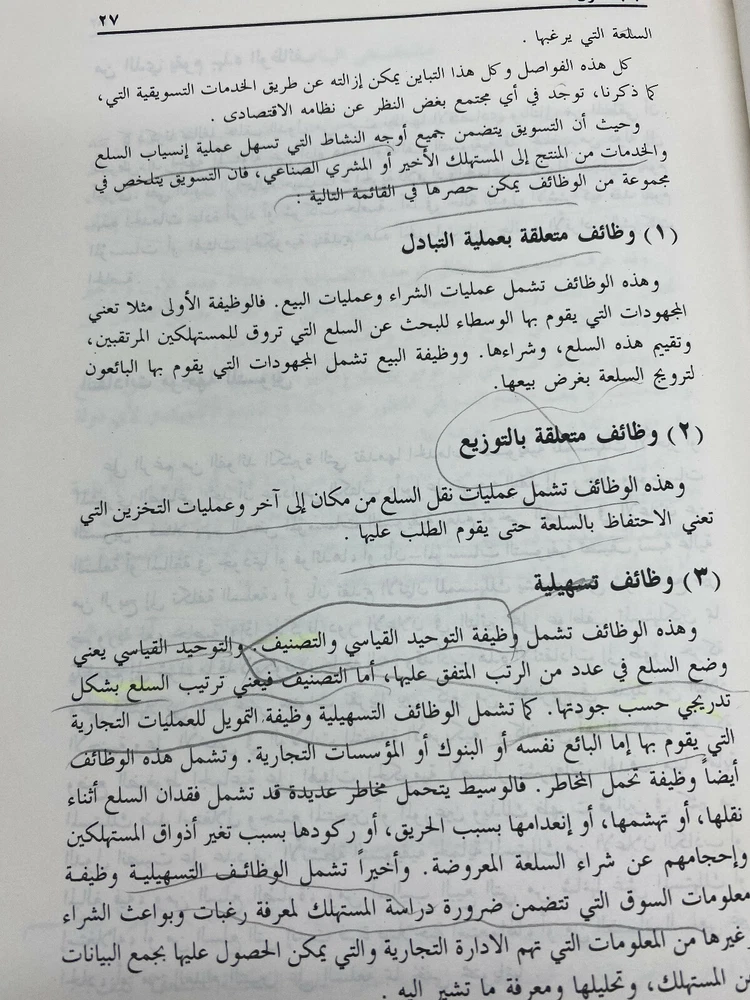 ٢٧
السلعة التي يرغبها .
كل هذه الفواصل وكل هذا التباين يمكن إزالته عن طريق الخدمات التسويقية التي،
كما ذكرنا، توجد في أي مجتمع بغض النظر عن نظامه الاقتصادى .
وحيث أن التسويق يتضمن جميع أوجه النشاط التي تسهل عملية إنسياب السلع
والخدمات من المنتج إلى المستهلك الأخير أو المشري الصناعي، فان التسويق يتلخص في
مجموعة من الوظائف يمكن حصرها في القائمة التالية :
(١) وظائف متعلقة بعملية التبادل
وهذه الوظائف تشمل عمليات الشراء وعمليات البيع. فالوظيفة الأولى مثلا تعني
المجهودات التي يقوم بها الوسطاء للبحث عن السلع التي تروق للمستهلكين المرتقبين،
وتقييم هذه السلع، وشراءها. ووظيفة البيع تشمل المجهودات التي يقوم بها البائعون
لترويج السلعة بغرض بيعها.
(٢) وظائف متعلقة بالتوزيع
وهذه الوظائف تشمل عمليات نقل السلع من مكان إلى آخر وعمليات التخزين التي
تعني الاحتفاظ بالسلعة حتى يقوم الطلب عليها .
(٣) وظائف تسهيلية
وهذه الوظائف تشمل وظيفة التوحيد القياسي والتصنيف. والتوحيد القياسي يعني
وضع السلع في عدد من الرتب المتفق عليها، أما التصنيف فيعني ترتيب السلع بشكل
تدريجي حسب جودتها. كما تشمل الوظائف التسهيلية وظيفة التمويل للعمليات التجارية
التي يقوم بها إما البائع نفسه أو البنوك أو المؤسسات التجارية. وتشمل هذه الوظائف
أيضاً وظيفة تحمل المخاطر. فالوسيط يتحمل مخاطر عديدة قد تشمل فقدان السلع أثناء
نقلها، أو تهشمها، أو إنعدامها بسبب الحريق، أو ركودها بسبب تغير أذواق المستهلكين
وإحجامهم عن شراء السلعة المعروضة. وأخيراً تشمل الوظائف التسهيلية وظيفة
معلومات السوق التي تتضمن ضرورة دراسة المستهلك لمعرفة رغبات وبواعث الشراء
وغيرها من المعلومات التي تهم الادارة التجارية والتي يمكن الحصول عليها بجمع البيانات
عن المستهلك، وتحليلها ومعرفة ما تشير اليه .